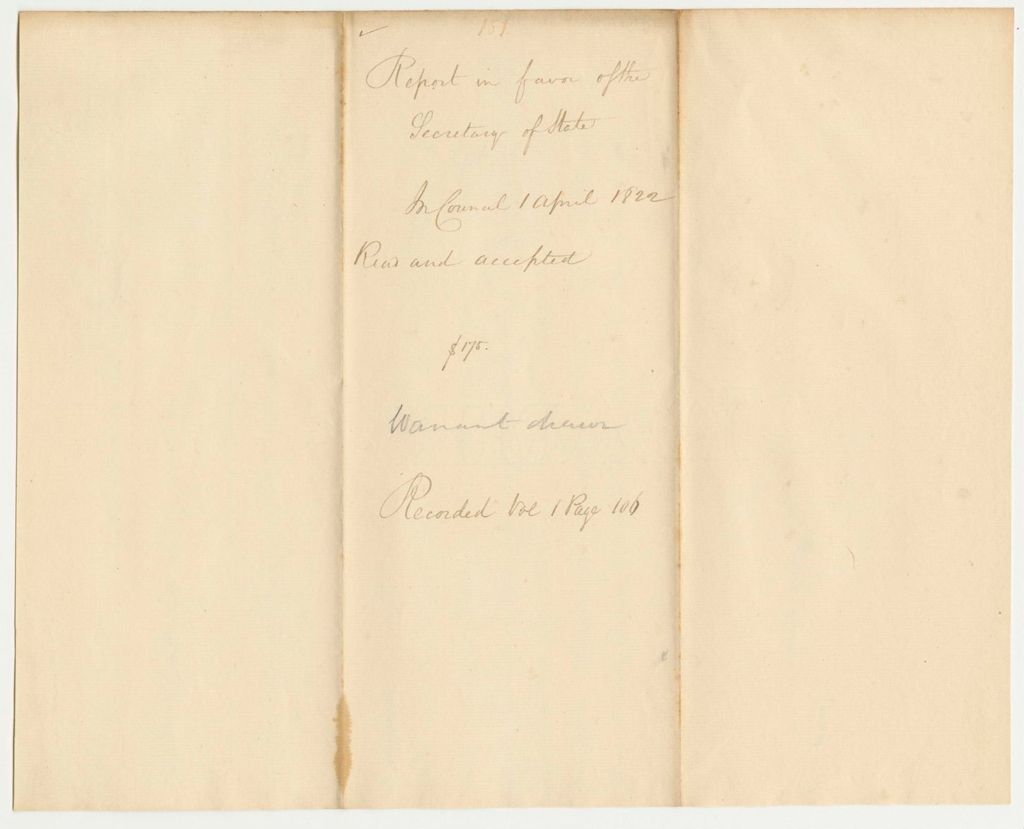 151
Report in favor of the
Secretary of State
In Council 1 April 1822
Read and accepted
$175.
Warrant drawn
Recorded Vol 1 Page 106